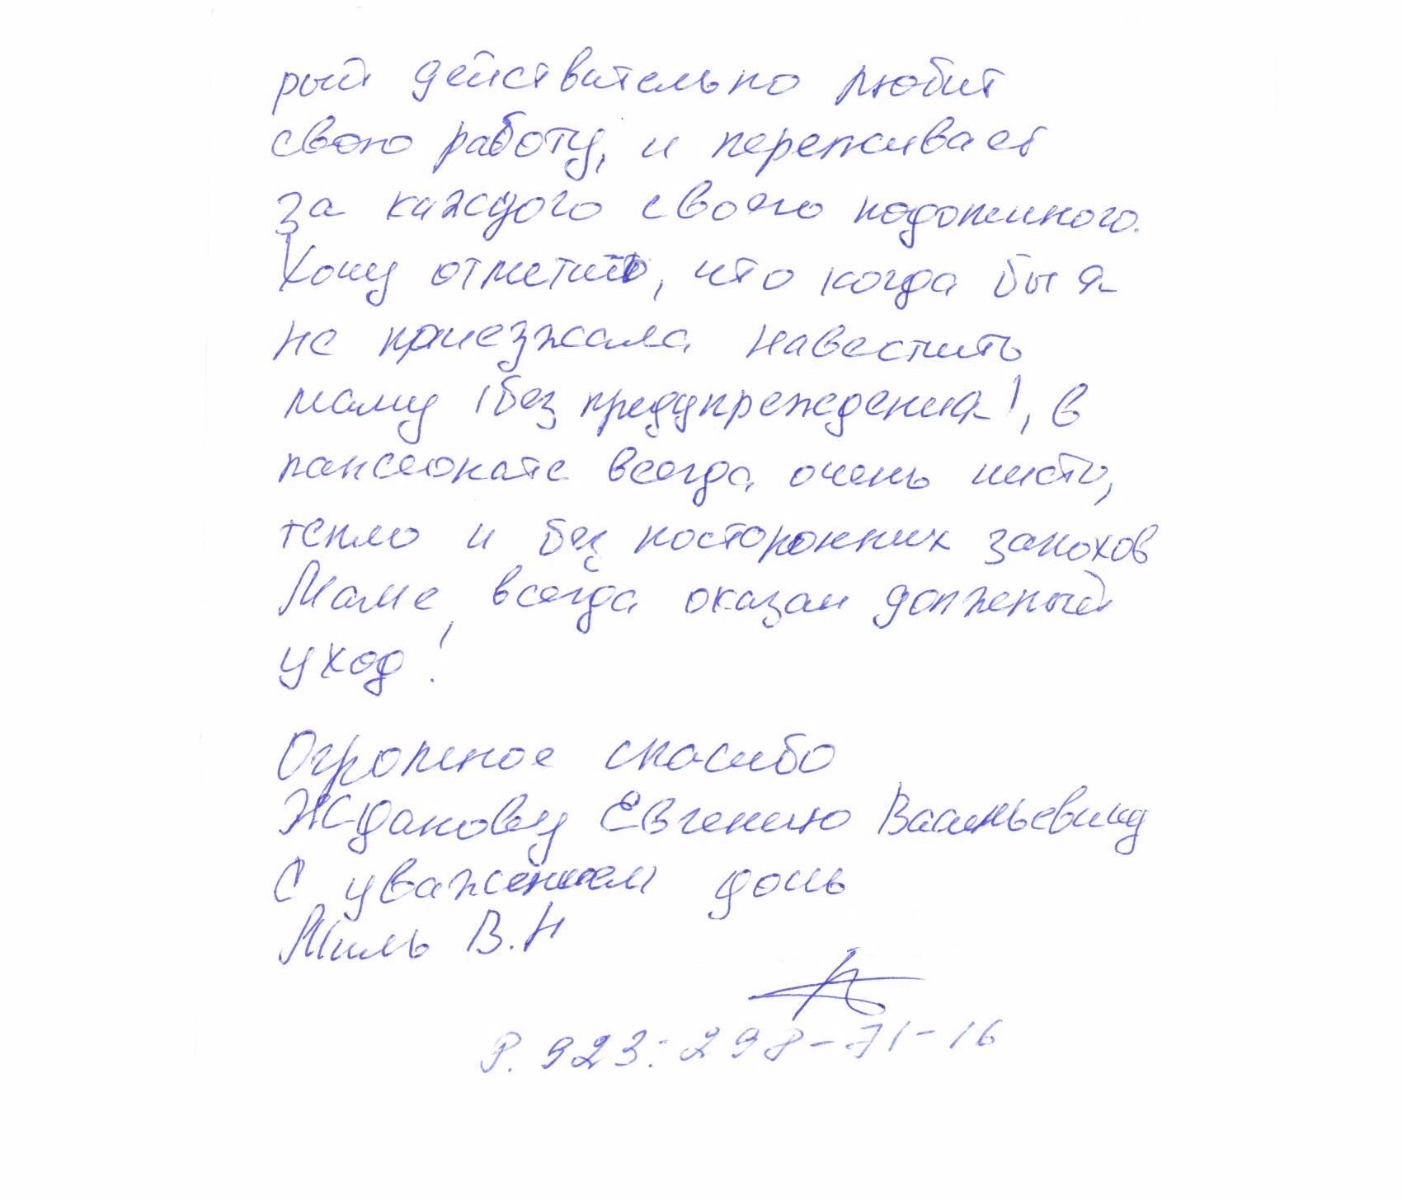 рый действительно любит
свою работу, и переживает
за каждого своего подопечного.
Хочу отметить, что когда бы я
не приезжала навестить
маму (без предупреждения), в
пансионате всегда очень чисто,
тепло и без посторонних запахов
Маме всегда оказан должный
уход!
Огромное спасибо
Жданову Евгению Васильевичу
С уважением дочь
Миль В.Н
8.923:298-71-16